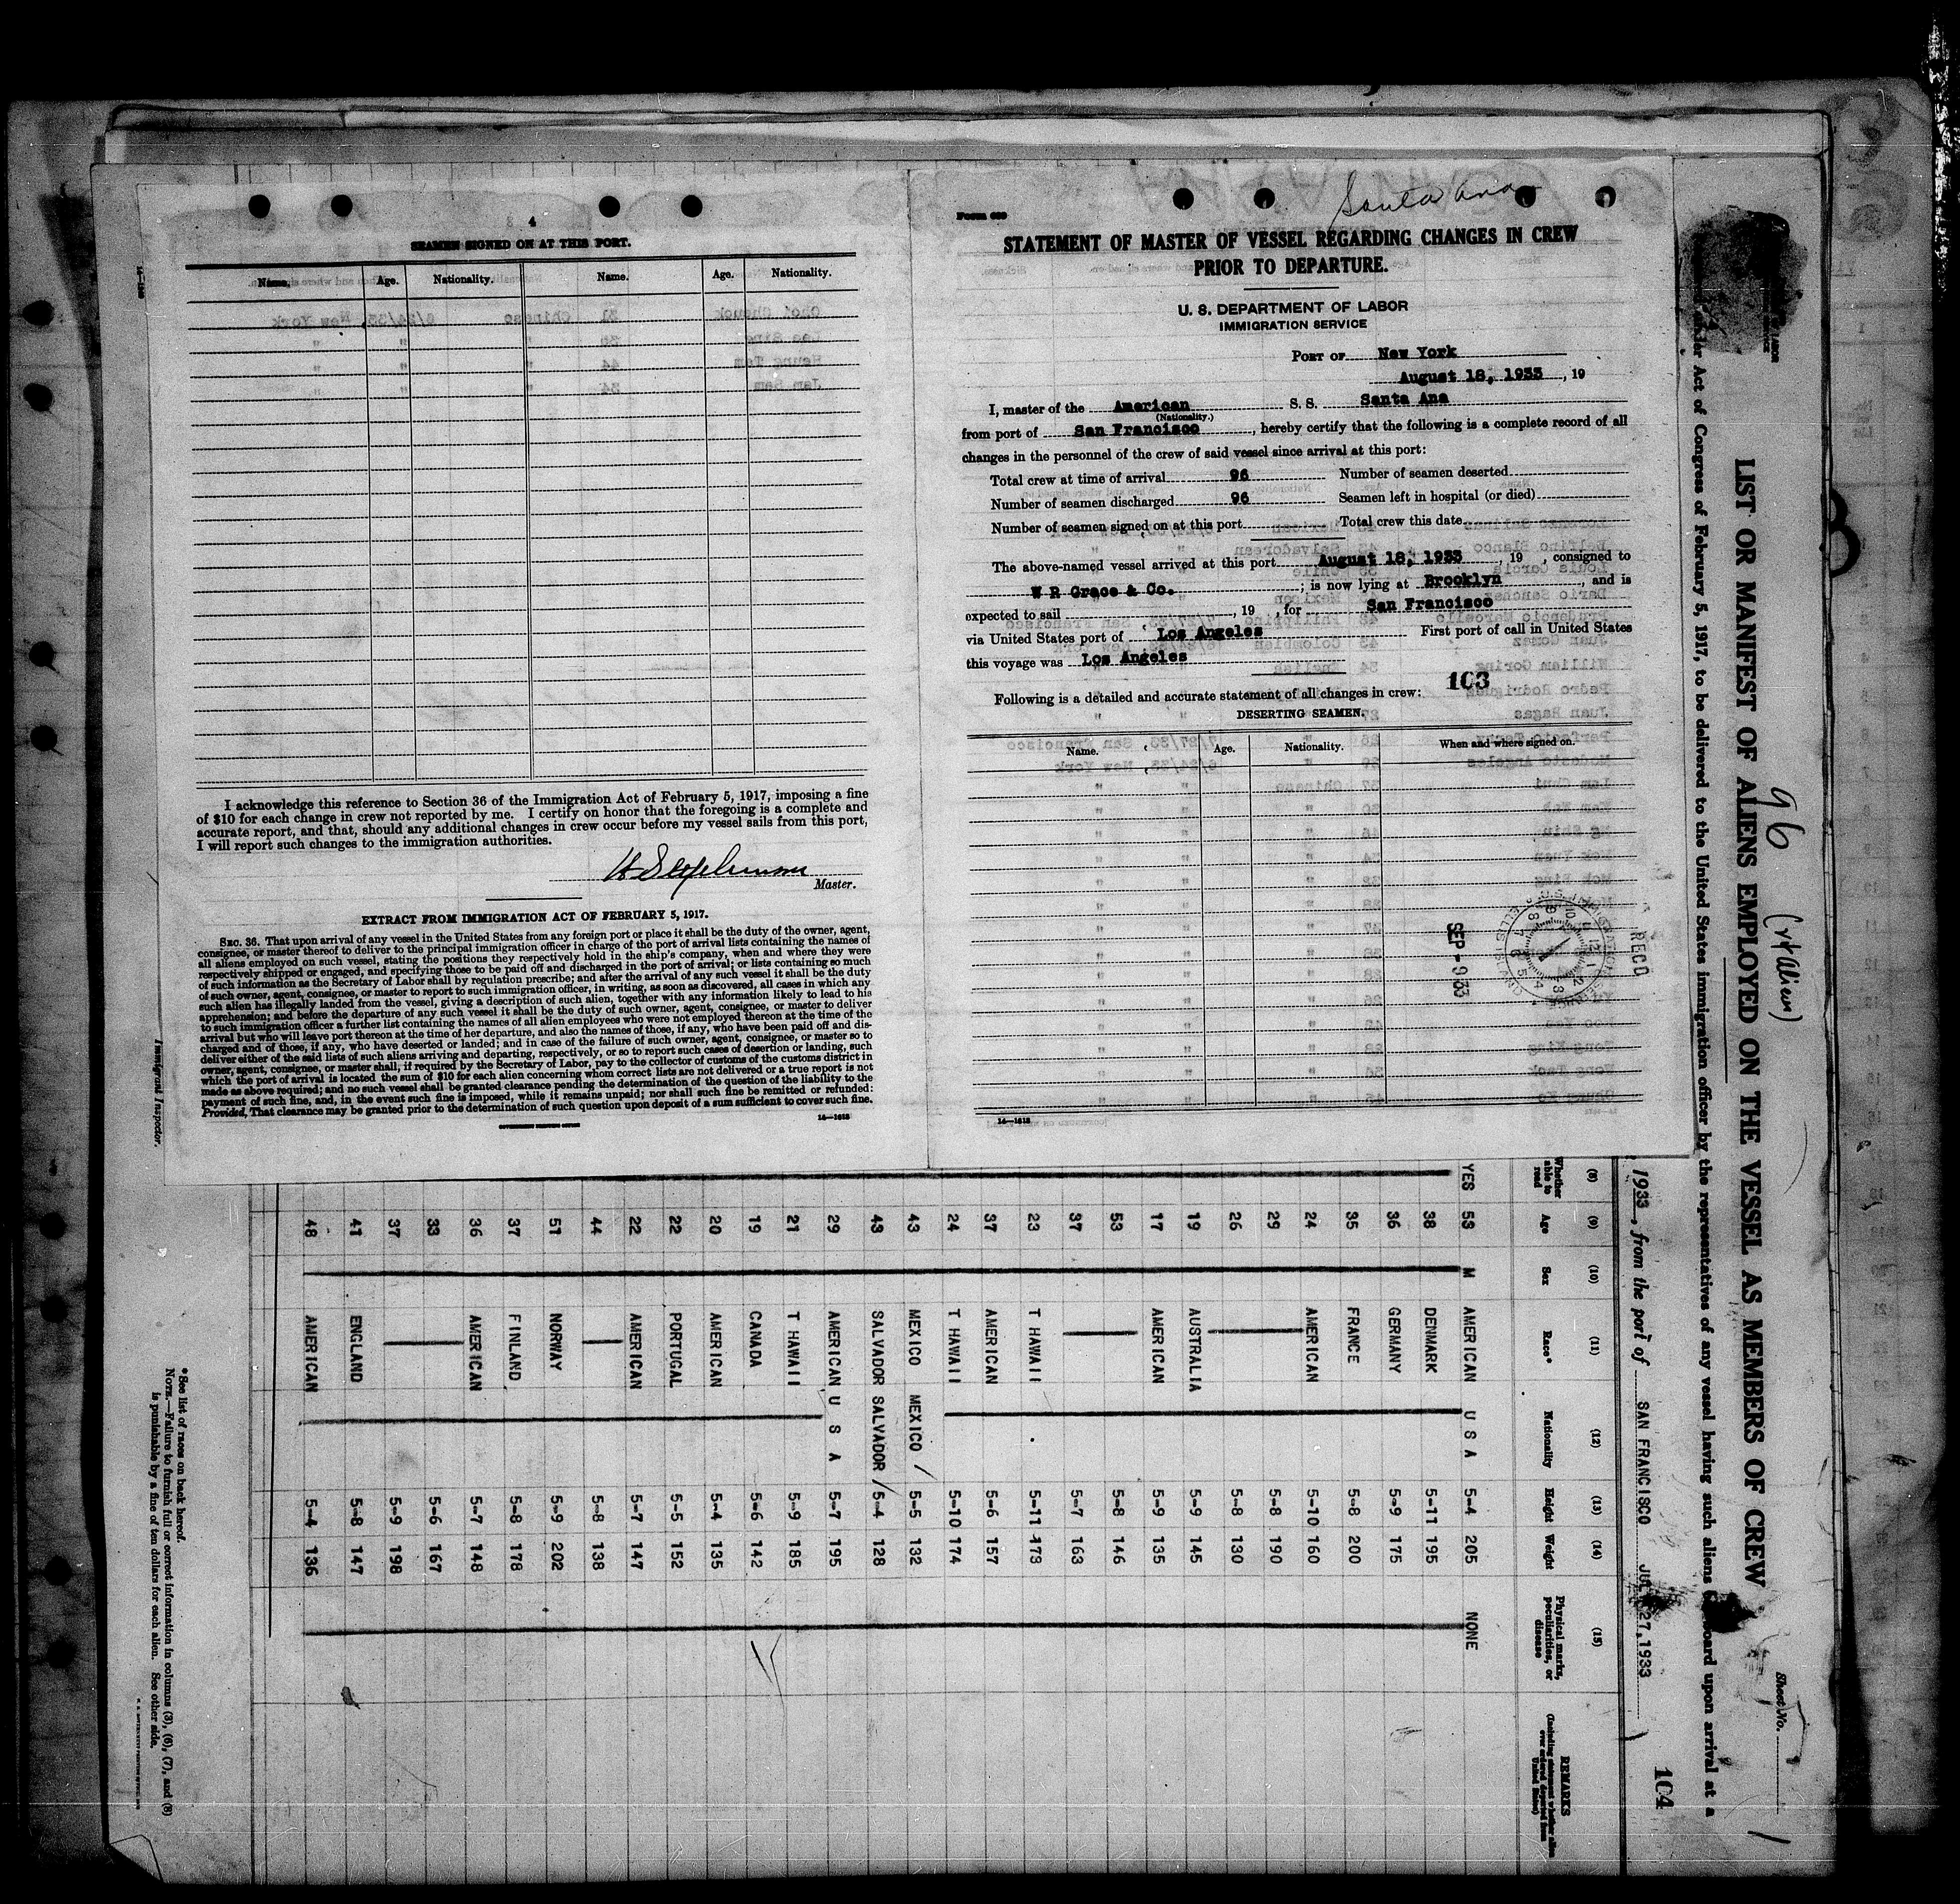 4
SEAMEN SIGNED ON AT THIS PORT.
Name. Age. Nationality. Name. Age. Nationality.
I acknowledge this reference to Section 36 of the Immigration Act of February 5, 1917, imposing a fine
of $10 for each change in crew not reported by me. I certify on honor that the foregoing is a complete and
accurate report, and that, should any additional changes in crew occur before my vessel sails from this port,
I will report such changes to the immigration authorities.
Master.
EXTRACT FROM IMMIGRATION ACT OF FEBRUARY 5, 1917.
SEC. 36. That upon arrival of any vessel in the United States from any foreign port or place it shall be the duty of the owner, agent,
consignee, or master thereof to deliver to the principal immigration officer in charge of the port of arrival lists containing the names of
all aliens employed on such vessel, stating the positions they respectively hold in the ship's company, when and where they were
respectively shipped or engaged, and specifying those to be paid off and discharged in the port of arrival; or lists containing so much
of such information as the Secretary of Labor shall by regulation prescribe; and after the arrival of any such vessel it shall be the duty
of such owner, agent, consignee, or master to report to such immigration officer, in writing, as soon as discovered, all cases in which any
such alien has illegally landed from the vessel, giving a description of such alien, together with any information likely to lead to his
apprehension; and before the departure of any such vessel it shall be the duty of such owner, agent, consignee, or master to deliver
to such immigration officer a further list containing the names of all alien employees who were not employed thereon at the time of the
arrival but who will leave port thereon at the time of her departure, and also the names of those, if any, who have been paid off and dis-
charged and of those, if any, who have deserted or landed; and in case of the failure of such owner, agent, consignee, or master so to
deliver either of the said lists of such aliens arriving and departing, respectively, or so to report such cases of desertion or landing, such
owner, agent, consignee, or master shall, if required by the Secretary of Labor, pay to the collector of customs of the customs district in
which the port of arrival is located the sum of $10 for each alien concerning whom correct lists are not delivered or a true report is not
made as above required; and no such vessel shall be granted clearance pending the determination of the question of the liability to the
payment of such fine, and, in the event such fine is imposed, while it remains unpaid; nor shall such fine be remitted or refunded:
Provided, That clearance may be granted prior to the determination of such question upon deposit of a sum sufficient to cover such fine.
GOVERNMENT PRINTING OFFICE 14—1618
Santa Ana
Form 689
STATEMENT OF MASTER OF VESSEL REGARDING CHANGES IN CREW
PRIOR TO DEPARTURE.
U. S. DEPARTMENT OF LABOR
IMMIGRATION SERVICE
PORT OF New York
August 18, 1933, 19
I, master of the American S. S. Santa Ana
(Nationality.)
from port of San Francisco, hereby certify that the following is a complete record of all
changes in the personnel of the crew of said vessel since arrival at this port:
Total crew at time of arrival 96 Number of seamen deserted
Number of seamen discharged 96 Seamen left in hospital (or died)
Number of seamen signed on at this port Total crew this date
The above-named vessel arrived at this port August 18, 1933, 19 , consigned to
W R Grace & Co. ; is now lying at Brooklyn, and is
expected to sail , 19 , for San Francisco
via United States port of Los Angeles First port of call in United States
this voyage was Los Angeles
103
Following is a detailed and accurate statement of all changes in crew:
DESERTING SEAMEN.
Name. Age. Nationality. When and where signed on.
SEP - 9 33
RECD
14—1618
Sheet No.
96 (1 Alien)
LIST OR MANIFEST OF ALIENS EMPLOYED ON THE VESSEL AS MEMBERS OF CREW
Act of Congress of February 5, 1917, to be delivered to the United States immigration officer by the representatives of any vessel having such aliens board upon arrival at a
1933, from the port of SAN FRANCISCO JUL 27, 1933
104
(8) (9) (10) (11) (12) (13) (14) (15)
Whether able to read Age Sex Race* Nationality Height Weight Physical marks, peculiarities, or disease REMARKS
YES 53 M AMERICAN U S A 5-4 205 NONE
38 DENMARK 5-11 195
36 GERMANY 5-9 175
35 FRANCE 5-8 200
24 AMERICAN 5-10 160
29 5-8 190
26 5-8 130
19 AUSTRALIA 5-9 145
17 AMERICAN 5-9 135
53 5-8 146
37 5-7 163
23 T HAWAII 5-11 173
37 AMERICAN 5-6 157
24 T HAWAII 5-10 174
43 MEXICO MEXICO / 5-5 132
43 SALVADOR SALVADOR / 5-4 128
29 AMERICAN U S A 5-7 195
21 T HAWAII 5-9 185
19 CANADA 5-6 142
20 AMERICAN 5-4 135
22 PORTUGAL 5-5 152
22 AMERICAN 5-7 147
44 5-8 138
51 NORWAY 5-9 202
37 FINLAND 5-8 178
36 AMERICAN 5-7 148
33 5-6 167
37 5-9 198
41 ENGLAND 5-8 147
48 AMERICAN 5-4 136
Immigrant Inspector.
* See list of races on back hereof.
NOTE.—Failure to furnish full or correct information in columns (3), (6), (7), and (8)
is punishable by a fine of ten dollars for each alien. See other side.